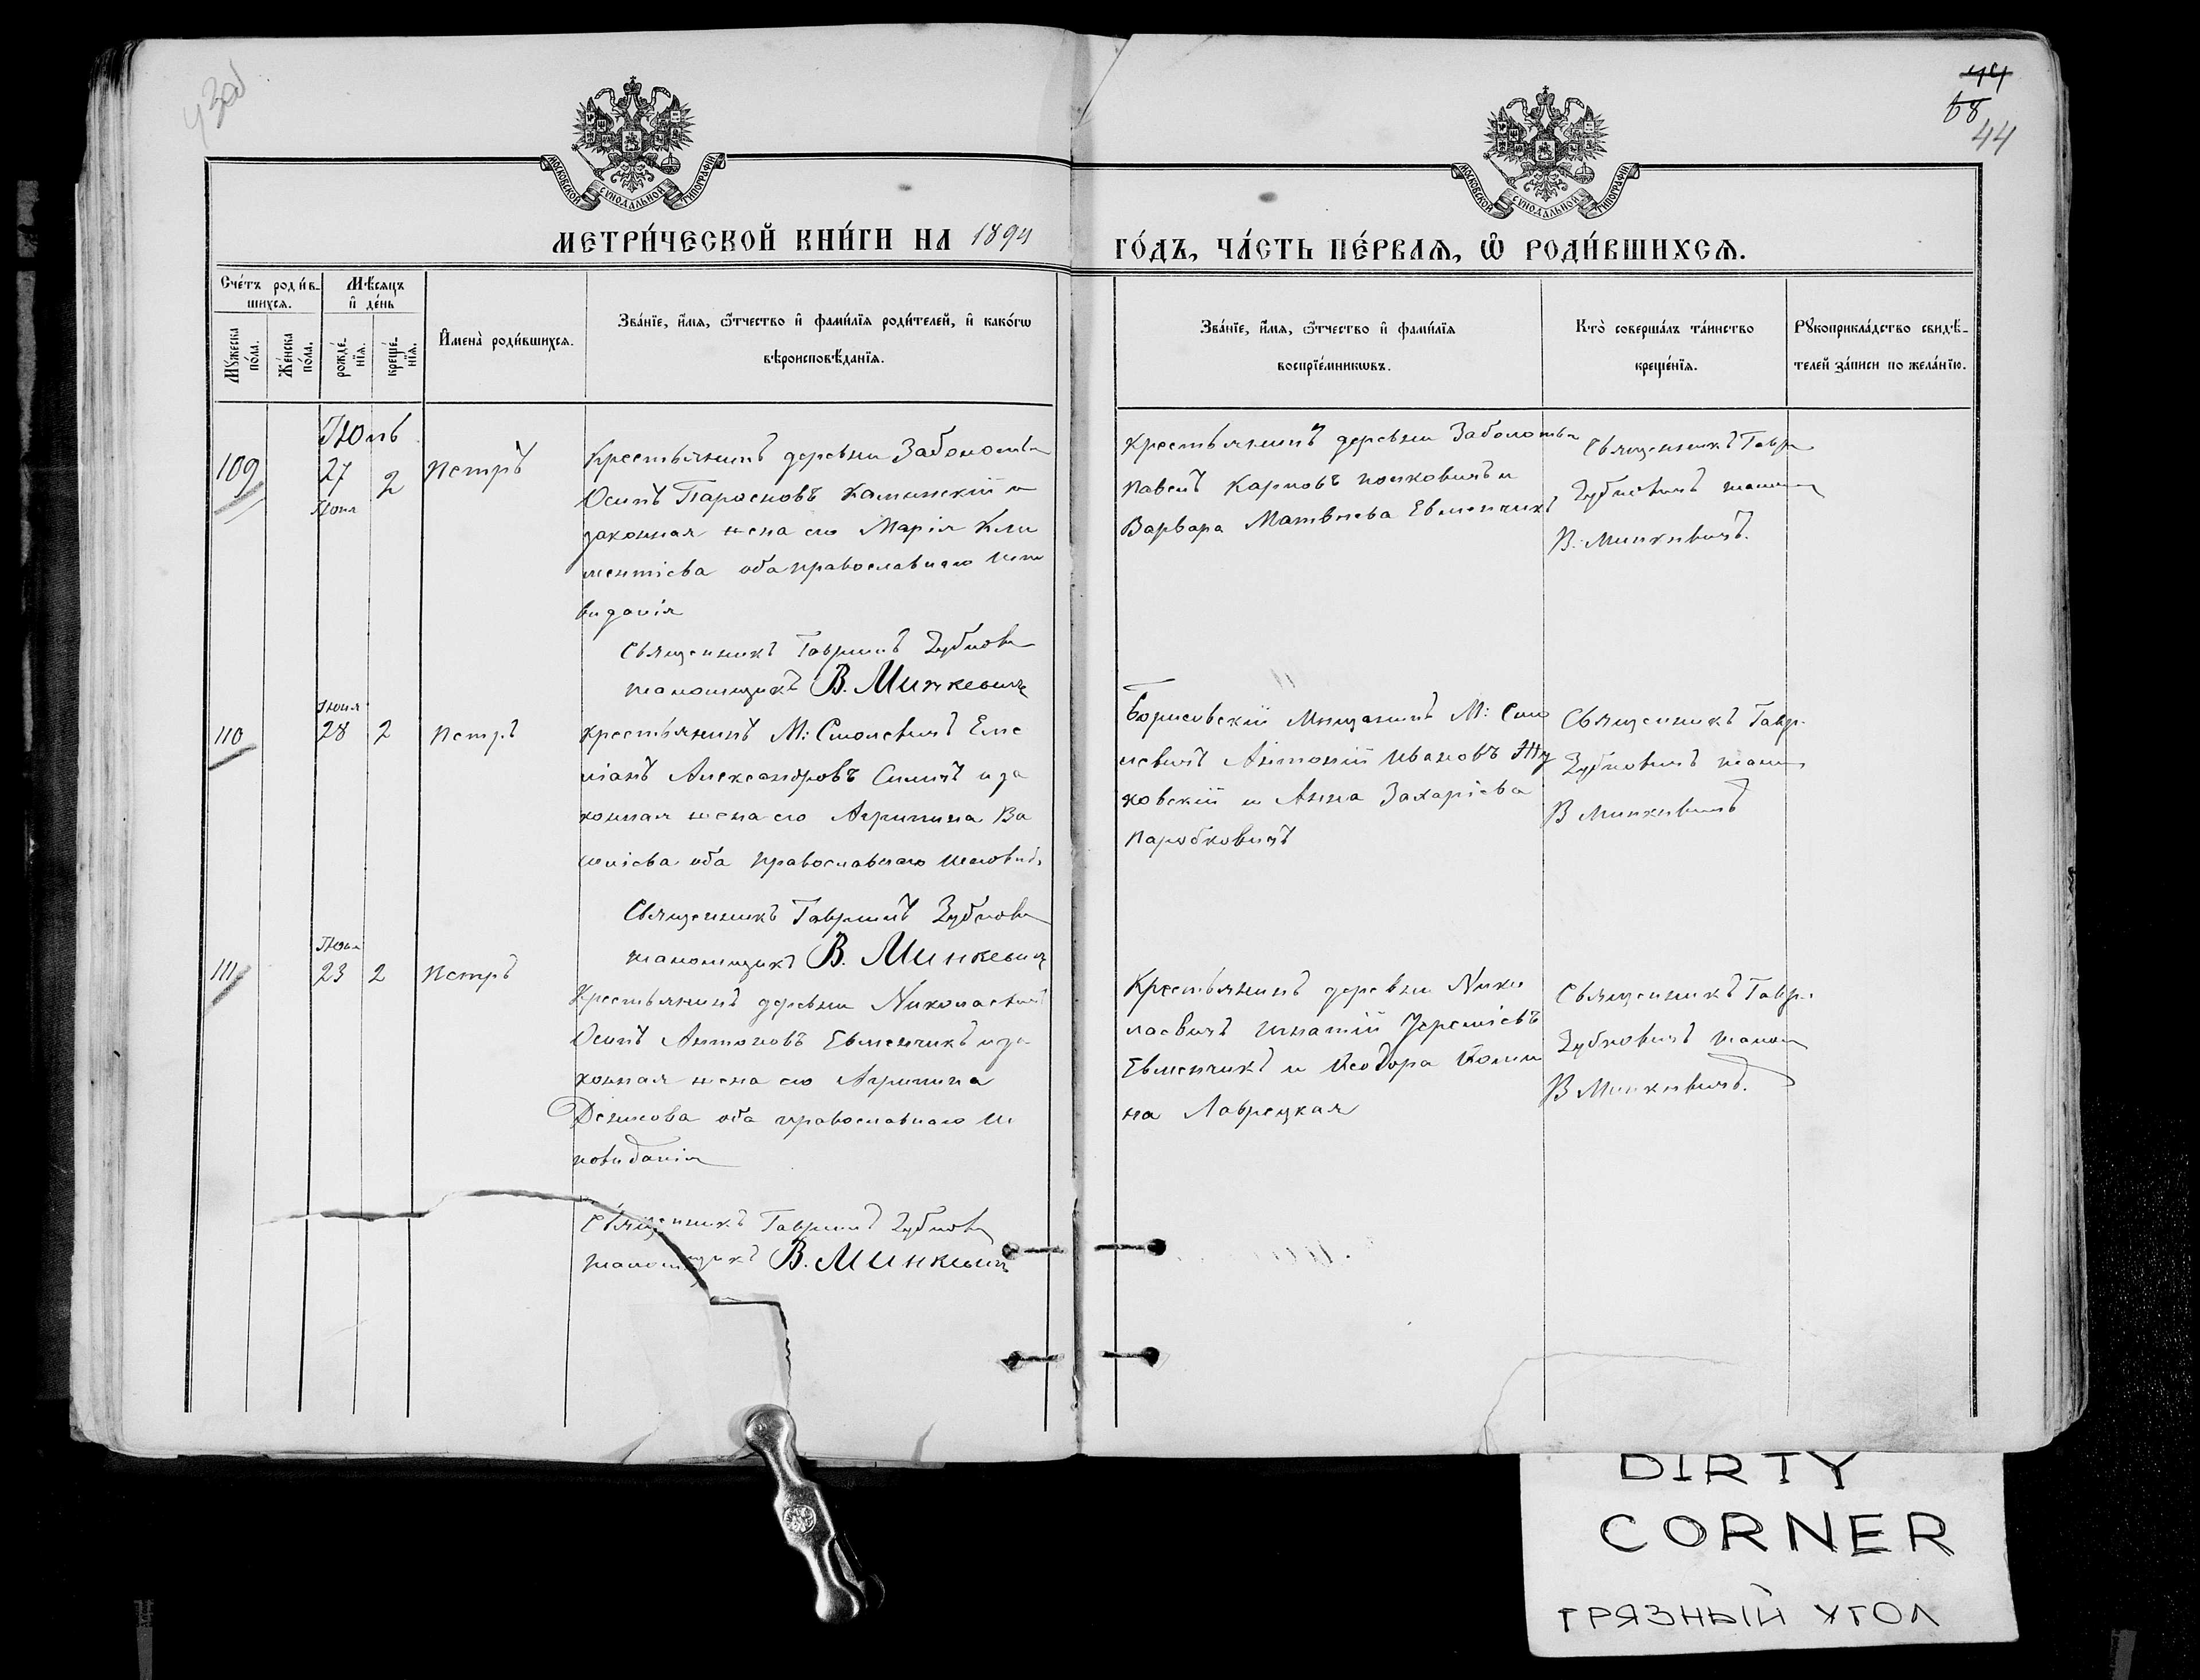 43об
44
68
44
МОСКОВСКОЙ СѴНОДАЛЬНОЙ ТИПОГРАФІИ
МОСКОВСКОЙ СѴНОДАЛЬНОЙ ТИПОГРАФІИ
МЕТРИ́ЧЕСКОЙ КНИ́ГИ НА 1894
ГО́ДЪ, ЧА́СТЬ ПЕ́РВАЯ, Ѽ РОДИ́ВШИХСЯ.
Сче́тъ роди́в-
шихся.
Мꙋ́жеска по́ла.
Же́нска по́ла.
Мѣ́сяцъ
и҆ де́нь
рожде́-
нїя.
креще́-
нїя.
И҆мена̀ роди́вшихся.
Зва́нїе, и҆́мя, ѻ҆́тчество и҆ фами́лїя роди́телей, и҆ како́гѡ
вѣроисповѣ́данїя.
Зва́нїе, и҆́мя, ѻ҆́тчество и҆ фами́лїя
воспрїе́мникѡвъ.
Кто̀ соверша́лъ та́инство
креще́нїя.
Рꙋкоприкла́дство свидѣ́-
телей за́писи по жела́нїю.
Іюль
109
27
Іюня
2
Петръ
Крестьянинъ деревни Заболотья
Осипъ Каминскій и
законная жена его Марія Кли
ментіева оба православнаго испо
виданія
Священникъ Гавріилъ Зубкови
псаломщикъ В. Минкевичъ
Крестьянинъ деревни Заболотья
Павелъ Карповъ и
Варвара Матвѣева Евменчикъ
Священникъ Гаврі
Зубковичъ псаломщ
В. Минкевичъ.
Іюня
110
28
2
Петръ
Крестьянинъ М: Смолевичъ Еме
ліанъ Александровъ и за
конная жена его Агрипина Ва
силіева оба православнаго исповид.
Священникъ Гавріилъ Зубкови
псаломщикъ В. Минкевичъ
Борисовскій Мищанинъ М: Смо
левичъ Антоній Ивановъ Жу
ковскій и Анна Захаріева
Паробковичъ
Священникъ Гавр.
Зубковичъ псалом
В Минкевичъ
Іюня
111
23
2
Петръ
Крестьянинъ деревни Николаевичъ
Осипъ Антоновъ Евменчикъ и за
конная жена его Агрипина
Денисова оба православнаго ис
повиданія
Священникъ Гавріилъ Зубкови
псаломщикъ В. Минкевичъ
Крестьянинъ деревни Нико
лаевичъ Игнатій Іереміевъ
Евменчикъ и Ѳеодора Ѳоми
на Лаврецкая
Священникъ Гавр.
Зубковичъ псалом
В Минкевичъ.
DIRTY
CORNER
ГРЯЗНЫЙ УГОЛ